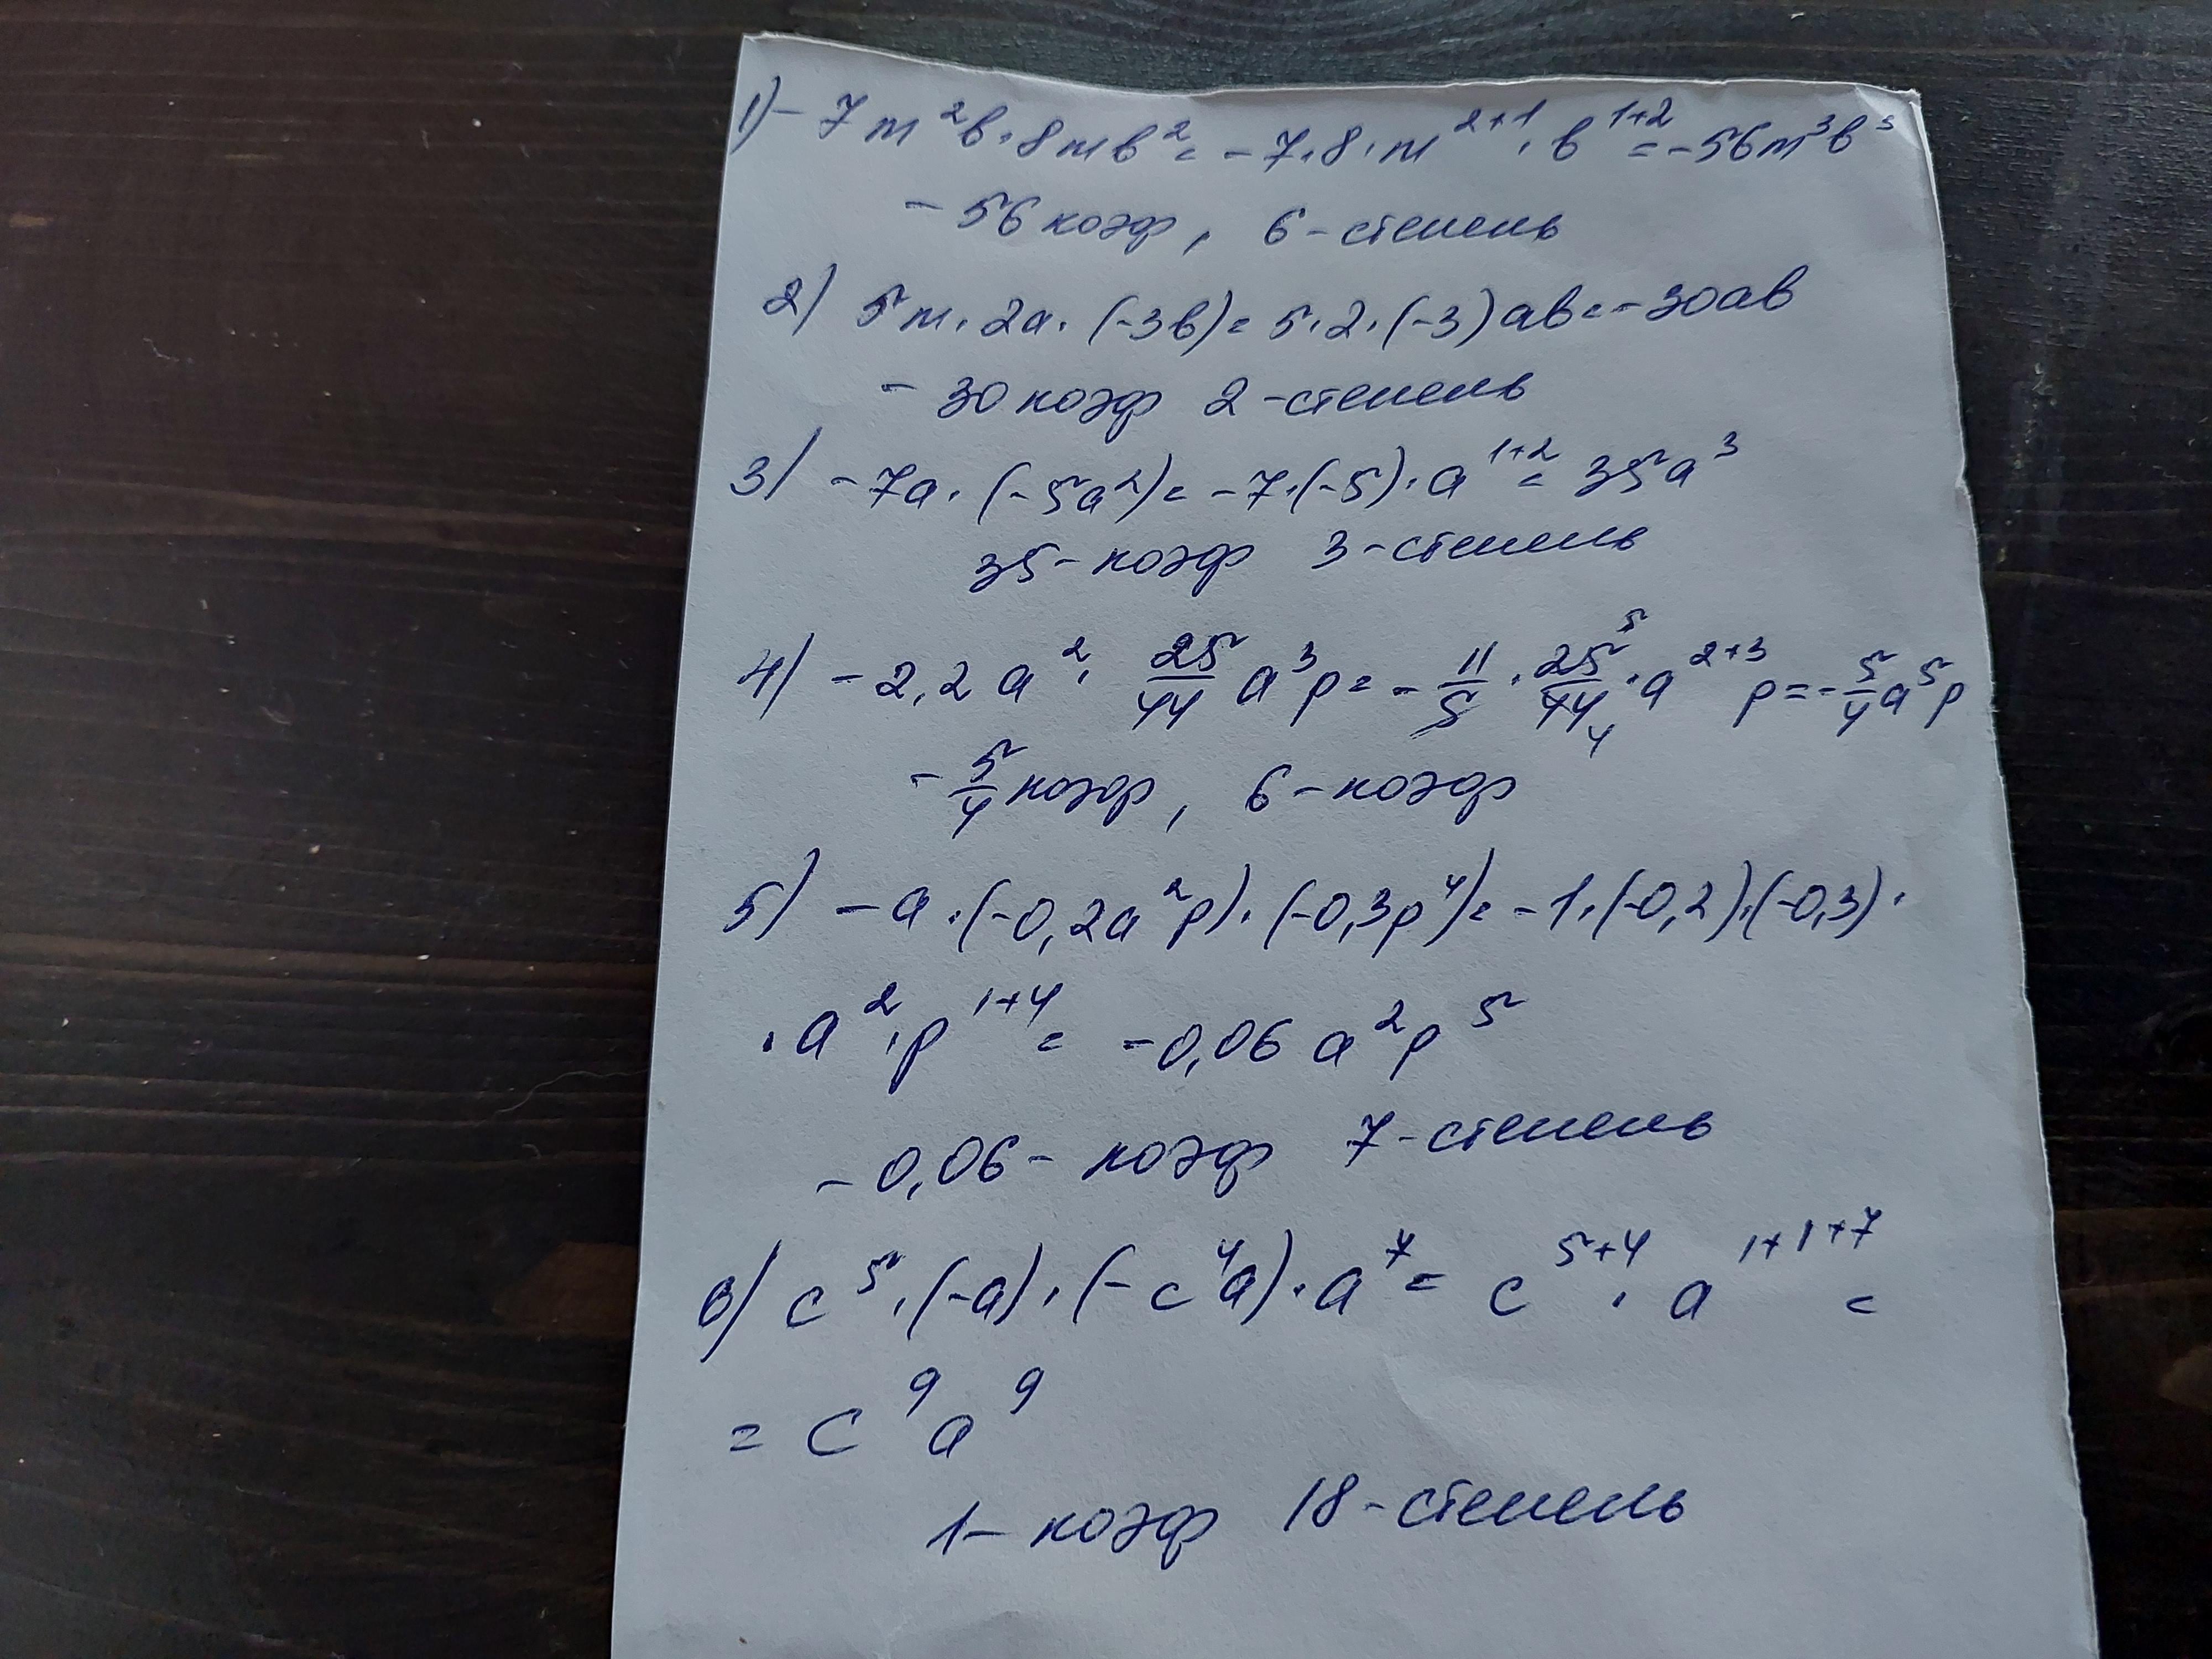 1) -7m²b·8mb² = -7·8·m²⁺¹·b¹⁺² = -56m³b³
-56 коэф, 6-степень
2) 5m·2a·(-3b) = 5·2·(-3)ab = -30ab
-30 коэф 2-степень
3) -7a·(-5a²) = -7·(-5)·a¹⁺² = 35a³
35-коэф 3-степень
4) -2,2a²·25/44 a³p = -11/5·25⁵/44₄·a²⁺³p = -5/4a⁵p
-5/4 коэф, 6-коэф
5) -a·(-0,2a²p)·(-0,3p⁴) = -1·(-0,2)·(-0,3)·
·a²·p¹⁺⁴ = -0,06a²p⁵
-0,06-коэф 7-степень
6) c⁵·(-a)·(-c⁴a)·a⁷ = c⁵⁺⁴·a¹⁺¹⁺⁷ =
= c⁹a⁹
1-коэф 18-степень